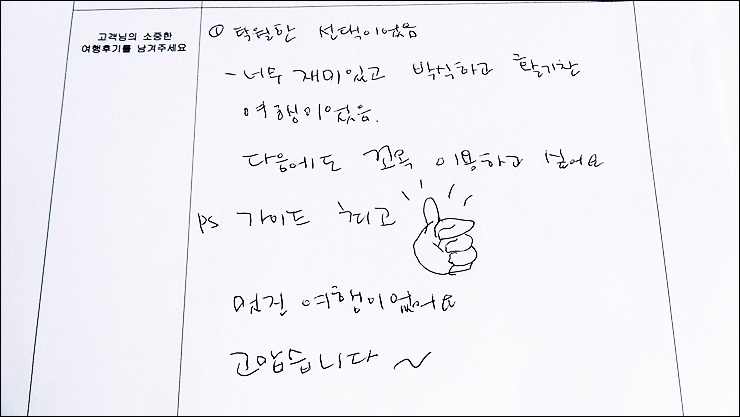 고객님의 소중한
여행후기를 남겨주세요
① 탁월한 선택이었음
- 너무 재미있고 박식하고 활기찬
여행이었음.
다음에도 꼬옥 이용하고 싶어요
ps 가이드 최고
멋진 여행이었어요
고맙습니다 ~